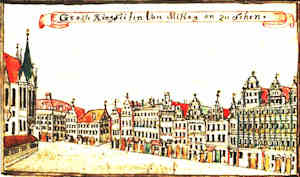 Gros̄e Ring Seitin Von Mittag an zu sehen.